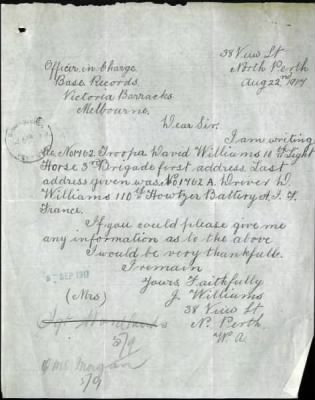 38 View St.
North Perth
Aug 22nd 1917
Officer in Charge
Base Records
Victoria Barracks
Melbourne.
Dear Sir.
I am writing
re No 1462 Trooper David Williams 10th Light
Horse 3rd Brigade first address. Last
address given was No 1462 A. Driver D.
Williams 110th Howitzer Battery A.I.F.
France.
If you could please give me
any information as to the above
I would be very thankfull.
I remain
Yours Faithfully
(Mrs) J. Williams
38 View St,
N. Perth
W.A.
SEP 1917
Sgt
5/9
Mr Morgan
5/9